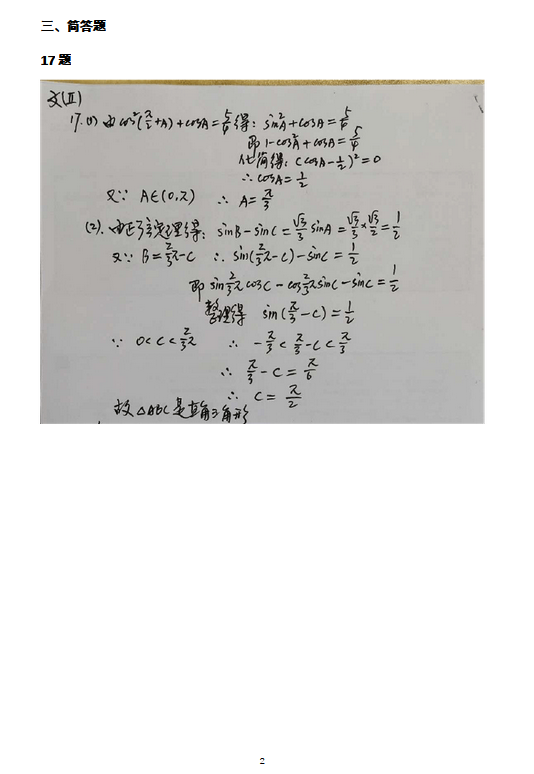 三、简答题
17题
文(Ⅱ)
17.(1) 由cos²(π/2+A)+cosA=5/4得: sin²A+cosA=5/4
即 1-cos²A+cosA=5/4
化简得: (cosA-1/2)²=0
∴ cosA=1/2
又∵ A∈(0,π) ∴ A=π/3
(2). 由正弦定理得: sinB-sinC=√3/3 sinA=√3/3×√3/2=1/2
又∵ B=2/3π-C ∴ sin(2/3π-C)-sinC=1/2
即 sin2/3π cosC-cos2/3π sinC-sinC=1/2
整理得 sin(π/3-C)=1/2
∵ 0<C<2/3π ∴ -π/3<π/3-C<π/3
∴ π/3-C=π/6
∴ C=π/2
故△ABC是直角三角形
2